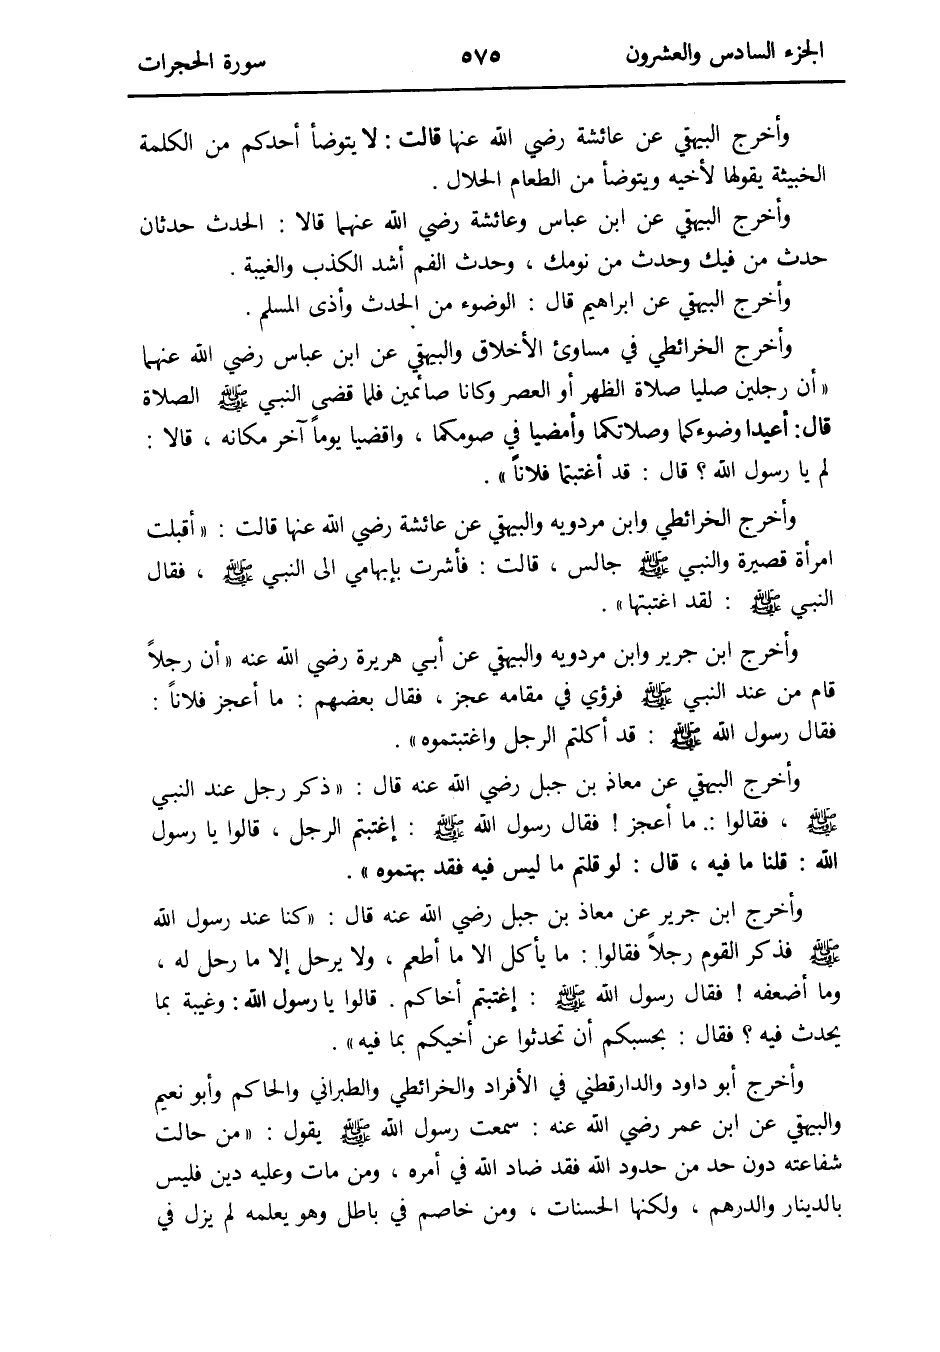 الجزء السادس والعشرون ٥٧٥ سورة الحجرات
وأخرج البيهقي عن عائشة رضي الله عنها قالت : لا يتوضأ أحدكم من الكلمة
الخبيثة يقولها لأخيه ويتوضأ من الطعام الحلال .
وأخرج البيهقي عن ابن عباس وعائشة رضي الله عنهما قالا : الحدث حدثان
حدث من فيك وحدث من نومك ، وحدث الفم أشد الكذب والغيبة .
وأخرج البيهقي عن ابراهيم قال : الوضوء من الحدث وأذى المسلم .
وأخرج الخرائطي في مساوئ الأخلاق والبيهقي عن ابن عباس رضي الله عنهما
« أن رجلين صليا صلاة الظهر أو العصر وكانا صائمين فلما قضى النبي ﷺ الصلاة
قال : أعيدا وضوءكما وصلاتكما وأمضيا في صومكما ، واقضيا يوماً آخر مكانه ، قالا :
لم يا رسول الله ؟ قال : قد أغتبتما فلاناً » .
وأخرج الخرائطي وابن مردويه والبيهقي عن عائشة رضي الله عنها قالت : « أقبلت
امرأة قصيرة والنبي ﷺ جالس ، قالت : فأشرت بإبهامي الى النبي ﷺ ، فقال
النبي ﷺ : لقد اغتبتها » .
وأخرج ابن جرير وابن مردويه والبيهقي عن أبي هريرة رضي الله عنه « أن رجلاً
قام من عند النبي ﷺ فرؤي في مقامه عجز ، فقال بعضهم : ما أعجز فلاناً :
فقال رسول الله ﷺ : قد أكلتم الرجل واغتبتموه » .
وأخرج البيهقي عن معاذ بن جبل رضي الله عنه قال : « ذكر رجل عند النبي
ﷺ ، فقالوا : ما أعجز ! فقال رسول الله ﷺ : إغتبتم الرجل ، قالوا يا رسول
الله : قلنا ما فيه ، قال : لو قلتم ما ليس فيه فقد بهتموه » .
وأخرج ابن جرير عن معاذ بن جبل رضي الله عنه قال : « كنا عند رسول الله
ﷺ فذكر القوم رجلاً فقالوا : ما يأكل الا ما أطعم ، ولا يرحل إلا ما رحل له ،
وما أضعفه ! فقال رسول الله ﷺ : إغتبتم أخاكم . قالوا يا رسول الله : وغيبة بما
يحدث فيه ؟ فقال : بحسبكم أن تحدثوا عن أخيكم بما فيه » .
وأخرج أبو داود والدارقطني في الأفراد والخرائطي والطبراني والحاكم وأبو نعيم
والبيهقي عن ابن عمر رضي الله عنه : سمعت رسول الله ﷺ يقول : « من حالت
شفاعته دون حد من حدود الله فقد ضاد الله في أمره ، ومن مات وعليه دين فليس
بالدينار والدرهم ، ولكنها الحسنات ، ومن خاصم في باطل وهو يعلمه لم يزل في